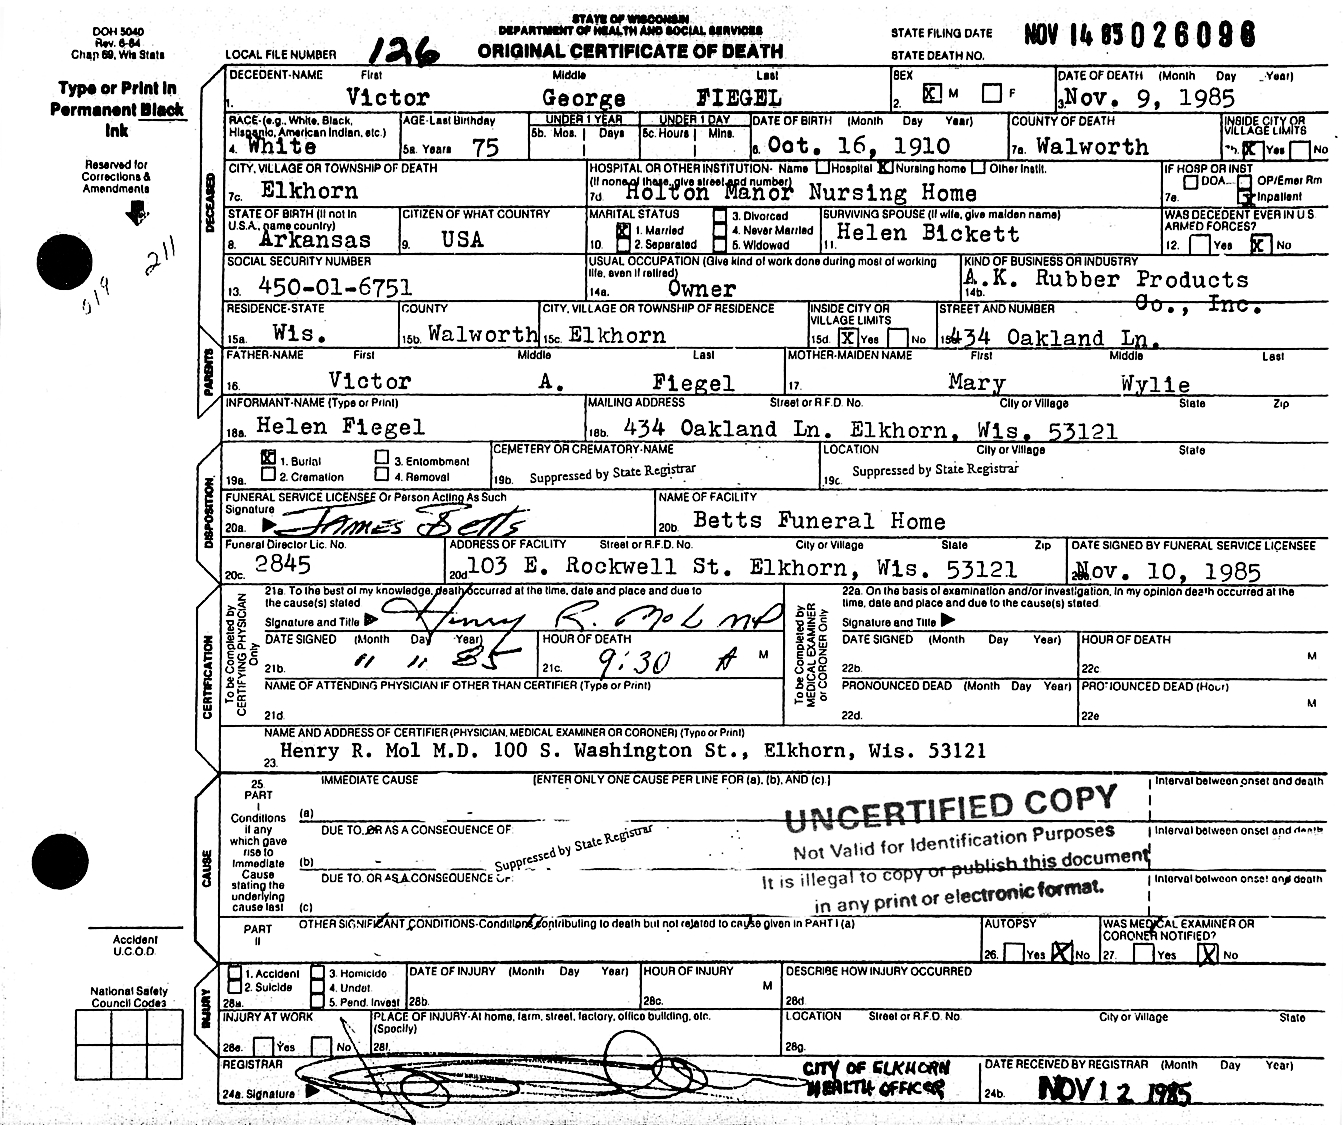 DOH 5040
Rev. 6-84
Chap 69, Wis Stats
STATE OF WISCONSIN
DEPARTMENT OF HEALTH AND SOCIAL SERVICES
ORIGINAL CERTIFICATE OF DEATH
LOCAL FILE NUMBER 126
STATE FILING DATE NOV 14 85 026096
STATE DEATH NO.
Type or Print in
Permanent Black
Ink
Reserved for
Corrections &
Amendments
211
019
DECEASED
DECEDENT-NAME First Middle Last
1. Victor George FIEGEL
SEX
2. X M F
DATE OF DEATH (Month Day Year)
3. Nov. 9, 1985
RACE-(e.g., White, Black, Hispanic, American Indian, etc.)
4. White
AGE-Last Birthday
5a. Years 75
UNDER 1 YEAR
5b. Mos. Days
UNDER 1 DAY
5c. Hours Mins.
DATE OF BIRTH (Month Day Year)
6. Oct. 16, 1910
COUNTY OF DEATH
7a. Walworth
INSIDE CITY OR VILLAGE LIMITS
7b. X Yes No
CITY, VILLAGE OR TOWNSHIP OF DEATH
7c. Elkhorn
HOSPITAL OR OTHER INSTITUTION- Name Hospital X Nursing home Other Instit.
(If none of these, give street and number)
7d. Holton Manor Nursing Home
IF HOSP OR INST
DOA OP/Emer Rm
7e. Inpatient
STATE OF BIRTH (If not in U.S.A., name country)
8. Arkansas
CITIZEN OF WHAT COUNTRY
9. USA
MARITAL STATUS
10. X 1. Married 2. Separated 3. Divorced 4. Never Married 5. Widowed
SURVIVING SPOUSE (If wife, give maiden name)
11. Helen Bickett
WAS DECEDENT EVER IN U.S ARMED FORCES?
12. Yes X No
SOCIAL SECURITY NUMBER
13. 450-01-6751
USUAL OCCUPATION (Give kind of work done during most of working life, even if retired)
14a. Owner
KIND OF BUSINESS OR INDUSTRY
14b. A.K. Rubber Products Co., Inc.
RESIDENCE-STATE
15a. Wis.
COUNTY
15b. Walworth
CITY, VILLAGE OR TOWNSHIP OF RESIDENCE
15c. Elkhorn
INSIDE CITY OR VILLAGE LIMITS
15d. X Yes No
STREET AND NUMBER
434 Oakland Ln.
PARENTS
FATHER-NAME First Middle Last
16. Victor A. Fiegel
MOTHER-MAIDEN NAME First Middle Last
17. Mary Wylie
INFORMANT-NAME (Type or Print)
18a. Helen Fiegel
MAILING ADDRESS Street or R.F.D. No. City or Village State Zip
18b. 434 Oakland Ln. Elkhorn, Wis. 53121
DISPOSITION
19a. X 1. Burial 2. Cremation 3. Entombment 4. Removal
CEMETERY OR CREMATORY-NAME
19b. Suppressed by State Registrar
LOCATION City or Village State
19c. Suppressed by State Registrar
FUNERAL SERVICE LICENSEE Or Person Acting As Such
Signature
20a. James Betts
NAME OF FACILITY
20b. Betts Funeral Home
Funeral Director Lic. No.
20c. 2845
ADDRESS OF FACILITY Street or R.F.D. No. City or Village State Zip
20d. 103 E. Rockwell St. Elkhorn, Wis. 53121
DATE SIGNED BY FUNERAL SERVICE LICENSEE
Nov. 10, 1985
CERTIFICATION
To be Completed by CERTIFYING PHYSICIAN Only
21a. To the best of my knowledge, death occurred at the time, date and place and due to the cause(s) stated
Signature and Title Henry R. Mol MD
DATE SIGNED (Month Day Year)
21b. 11 11 85
HOUR OF DEATH
21c. 9:30 A M
NAME OF ATTENDING PHYSICIAN IF OTHER THAN CERTIFIER (Type or Print)
21d.
To be Completed by MEDICAL EXAMINER or CORONER Only
22a. On the basis of examination and/or investigation, in my opinion death occurred at the time, date and place and due to the cause(s) stated
Signature and Title
DATE SIGNED (Month Day Year)
22b.
HOUR OF DEATH
22c M
PRONOUNCED DEAD (Month Day Year)
22d.
PRONOUNCED DEAD (Hour)
22e M
NAME AND ADDRESS OF CERTIFIER (PHYSICIAN, MEDICAL EXAMINER OR CORONER) (Type or Print)
23. Henry R. Mol M.D. 100 S. Washington St., Elkhorn, Wis. 53121
CAUSE
25. PART I
Conditions if any which gave rise to Immediate Cause stating the underlying cause last
IMMEDIATE CAUSE [ENTER ONLY ONE CAUSE PER LINE FOR (a), (b), AND (c).] Interval between onset and death
(a)
DUE TO, OR AS A CONSEQUENCE OF: Interval between onset and death
(b) Suppressed by State Registrar
DUE TO, OR AS A CONSEQUENCE OF: Interval between onset and death
(c)
UNCERTIFIED COPY
Not Valid for Identification Purposes
It is illegal to copy or publish this document
in any print or electronic format.
PART II
OTHER SIGNIFICANT CONDITIONS-Conditions contributing to death but not related to cause given in PART I (a)
AUTOPSY
26. Yes X No
WAS MEDICAL EXAMINER OR CORONER NOTIFIED?
27. Yes X No
Accident
U.C.O.D.
National Safety
Council Codes
INJURY
28a. 1. Accident 2. Suicide 3. Homicide 4. Undet. 5. Pend. Invest
DATE OF INJURY (Month Day Year)
28b.
HOUR OF INJURY
28c. M
DESCRIBE HOW INJURY OCCURRED
28d.
INJURY AT WORK
28e. Yes No
PLACE OF INJURY-At home, farm, street, factory, office building, etc. (Specify)
28f.
LOCATION Street or R.F.D. No. City or Village State
28g.
REGISTRAR
24a. Signature
CITY OF ELKHORN
HEALTH OFFICER
DATE RECEIVED BY REGISTRAR (Month Day Year)
24b. NOV 12 1985